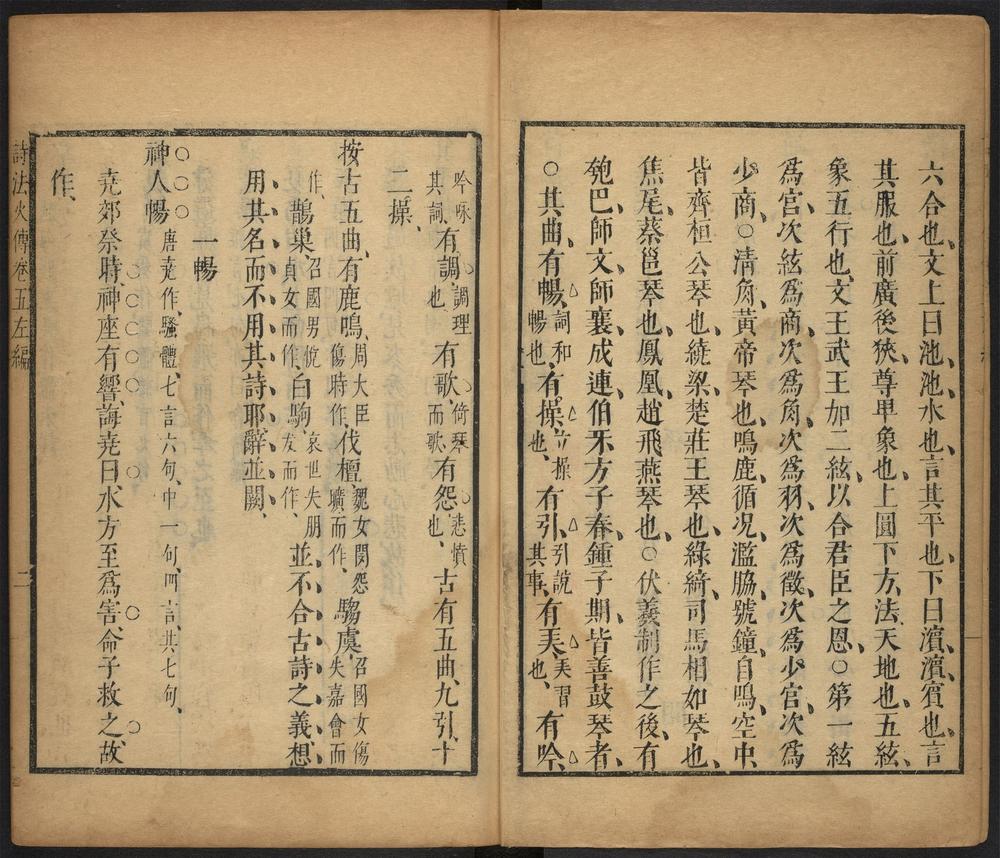 六合也、文上曰池、池水也、言其平也、下曰濵、濵賓也、言
其服也、前廣後狹、尊卑象也、上圓下方、法天地也、五絃、
象五行也、文王武王加二絃、以合君臣之恩、○第一絃
爲宮、次絃爲商、次爲角、次爲羽、次爲徵、次爲少宮、次爲
少商、○清角、黃帝琴也、鳴鹿、循况、濫脇、號鐘、自鳴、空中、
皆齊桓公琴也、繞梁、楚莊王琴也、綠綺、司馬相如琴也、
焦尾、蔡邕琴也、鳳凰、趙飛燕琴也、○伏羲制作之後、有
匏巴、師文、師襄、成連、伯牙、方子春、鍾子期、皆善鼓琴者、
○其曲、有暢、詞和暢也、有操、立操也、有引、引說其事、有美、美習也、有吟、
吟咏其詞、有調、調理也、有歌、倚琴而歌、有怨、悲憤也、古有五曲、九引、十
二操、
按、古五曲、有鹿鳴、周大臣傷時作、伐檀、魏女閔怨曠而作、騶虞、召國女傷失嘉會而
作、鵲巢、召國男悅貞女而作、白駒、哀世失朋友而作、並不合古詩之義、想
用其名而不用其詩耶、辭並闕、
一暢
○○○
神人暢 唐堯作、騷體、七言六句、中一句、四言、共七句、
堯郊祭時、神座有響、誨堯曰、水方至爲害、命子救之、故
作、
詩法火傳卷五左編 二